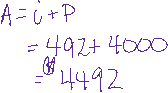 A = i + P
= 492 + 4000
= 4492